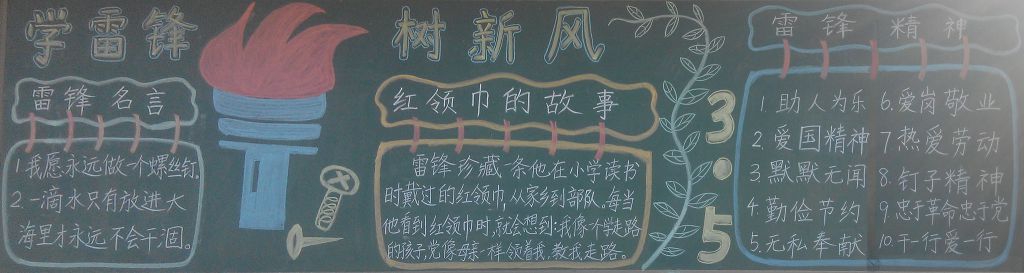 学雷锋
树新风
雷锋名言
1.我愿永远做一个螺丝钉。
2.一滴水只有放进大
海里才永远不会干涸。
红领巾的故事
雷锋珍藏一条他在小学读书
时戴过的红领巾,从家乡到部队。每当
他看到红领巾时,就会想到:我像个学走路
的孩子,党像母亲一样领着我,教我走路。
3·5
雷锋精神
1.助人为乐
2.爱国精神
3.默默无闻
4.勤俭节约
5.无私奉献
6.爱岗敬业
7.热爱劳动
8.钉子精神
9.忠于革命忠于党
10.干一行爱一行